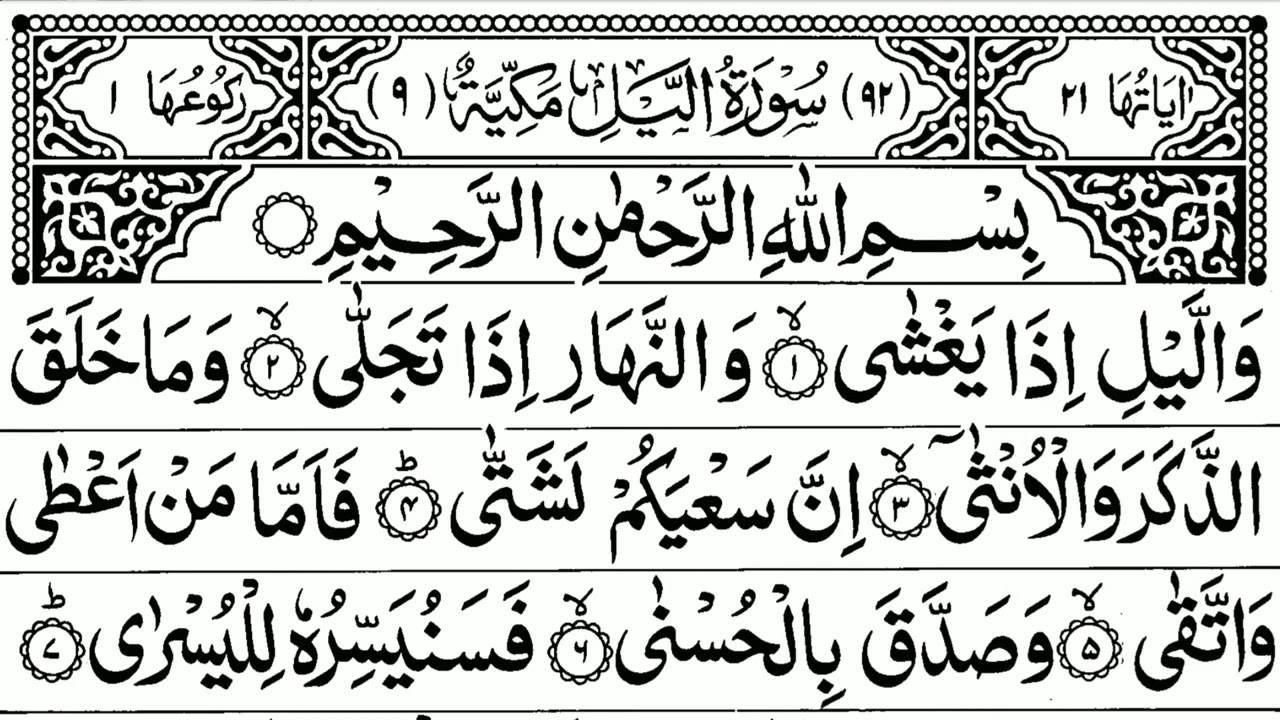 اٰيَاتُهَا ٢١ (٩٢) سُوْرَةُ الَّيْلِ مَكِّيَّةٌ (٩) رُكُوْعُهَا ١
بِسْمِ اللّٰهِ الرَّحْمٰنِ الرَّحِيْمِ
وَالَّيْلِ اِذَا يَغْشٰى ۙ ١ وَالنَّهَارِ اِذَا تَجَلّٰى ۙ ٢ وَمَا خَلَقَ
الذَّكَرَ وَالْاُنْثٰٓى ۙ ٣ اِنَّ سَعْيَكُمْ لَشَتّٰى ؕ ۴ فَاَمَّا مَنْ اَعْطٰى
وَاتَّقٰى ۙ ۵ وَصَدَّقَ بِالْحُسْنٰى ۙ ۶ فَسَنُيَسِّرُهٗ لِلْيُسْرٰى ؕ ۷